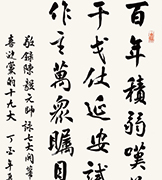 百年積弱嘆
干戈仗延安試
作主萬眾矚目
敬錄陳毅元帥詠七大開幕
喜迎黨的十九大 丁酉年